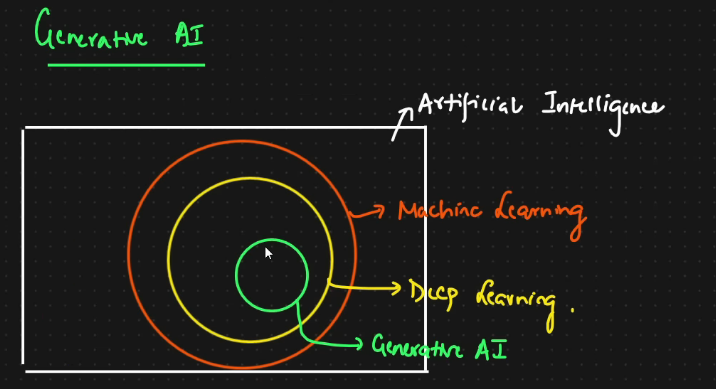 Generative AI
Artificial Intelligence
Machine Learning
Deep Learning.
Generative AI